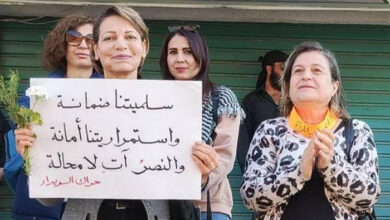 سلميتنا ضمانة
واستمراريتنا أمانة
والنصر آتٍ لا محالة
حراك السويداء